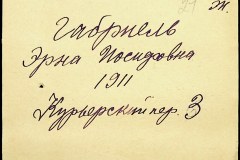 Габриель
Эрна Иосифовна
1911
Курьерский пер. 3